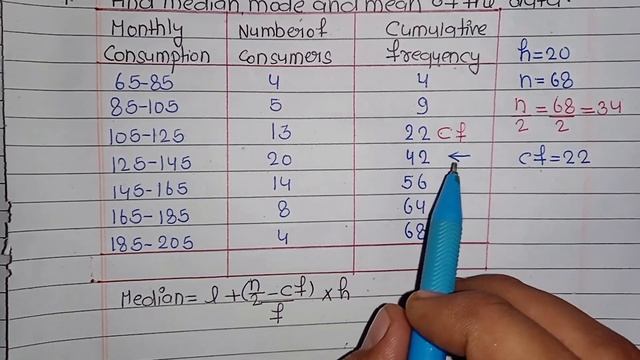 Find median, mode and mean of the data.
Monthly Consumption | Number of Consumers | Cumulative frequency
65-85 | 4 | 4
85-105 | 5 | 9
105-125 | 13 | 22 cf
125-145 | 20 | 42 ←
145-165 | 14 | 56
165-185 | 8 | 64
185-205 | 4 | 68
h=20
n=68
n/2 = 68/2 = 34
cf=22
Median = l + (n/2 - cf)/f × h